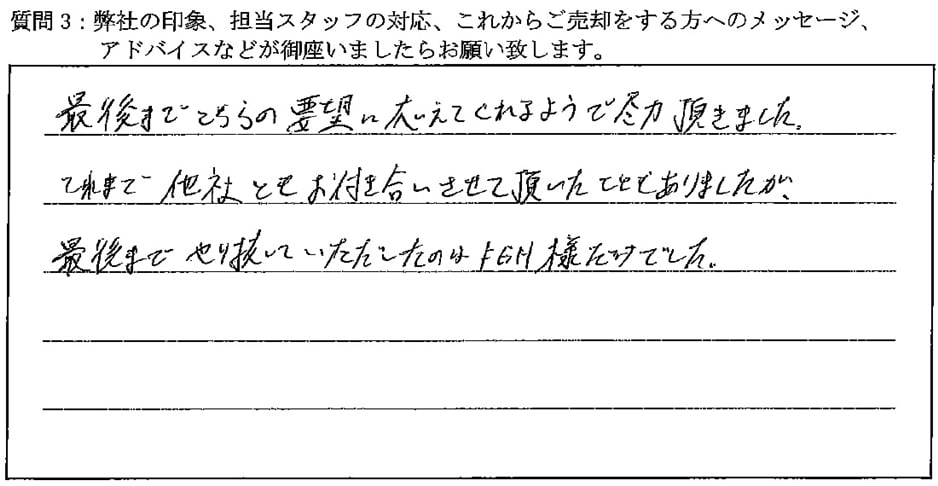 質問3:弊社の印象、担当スタッフの対応、これからご売却をする方へのメッセージ、
アドバイスなどが御座いましたらお願い致します。
最後までこちらの要望に応えてくれるようで尽力頂きました。
これまで他社ともお付き合いさせて頂いたこともありましたが、
最後までやり抜いていただいたのはFGH様だけでした。